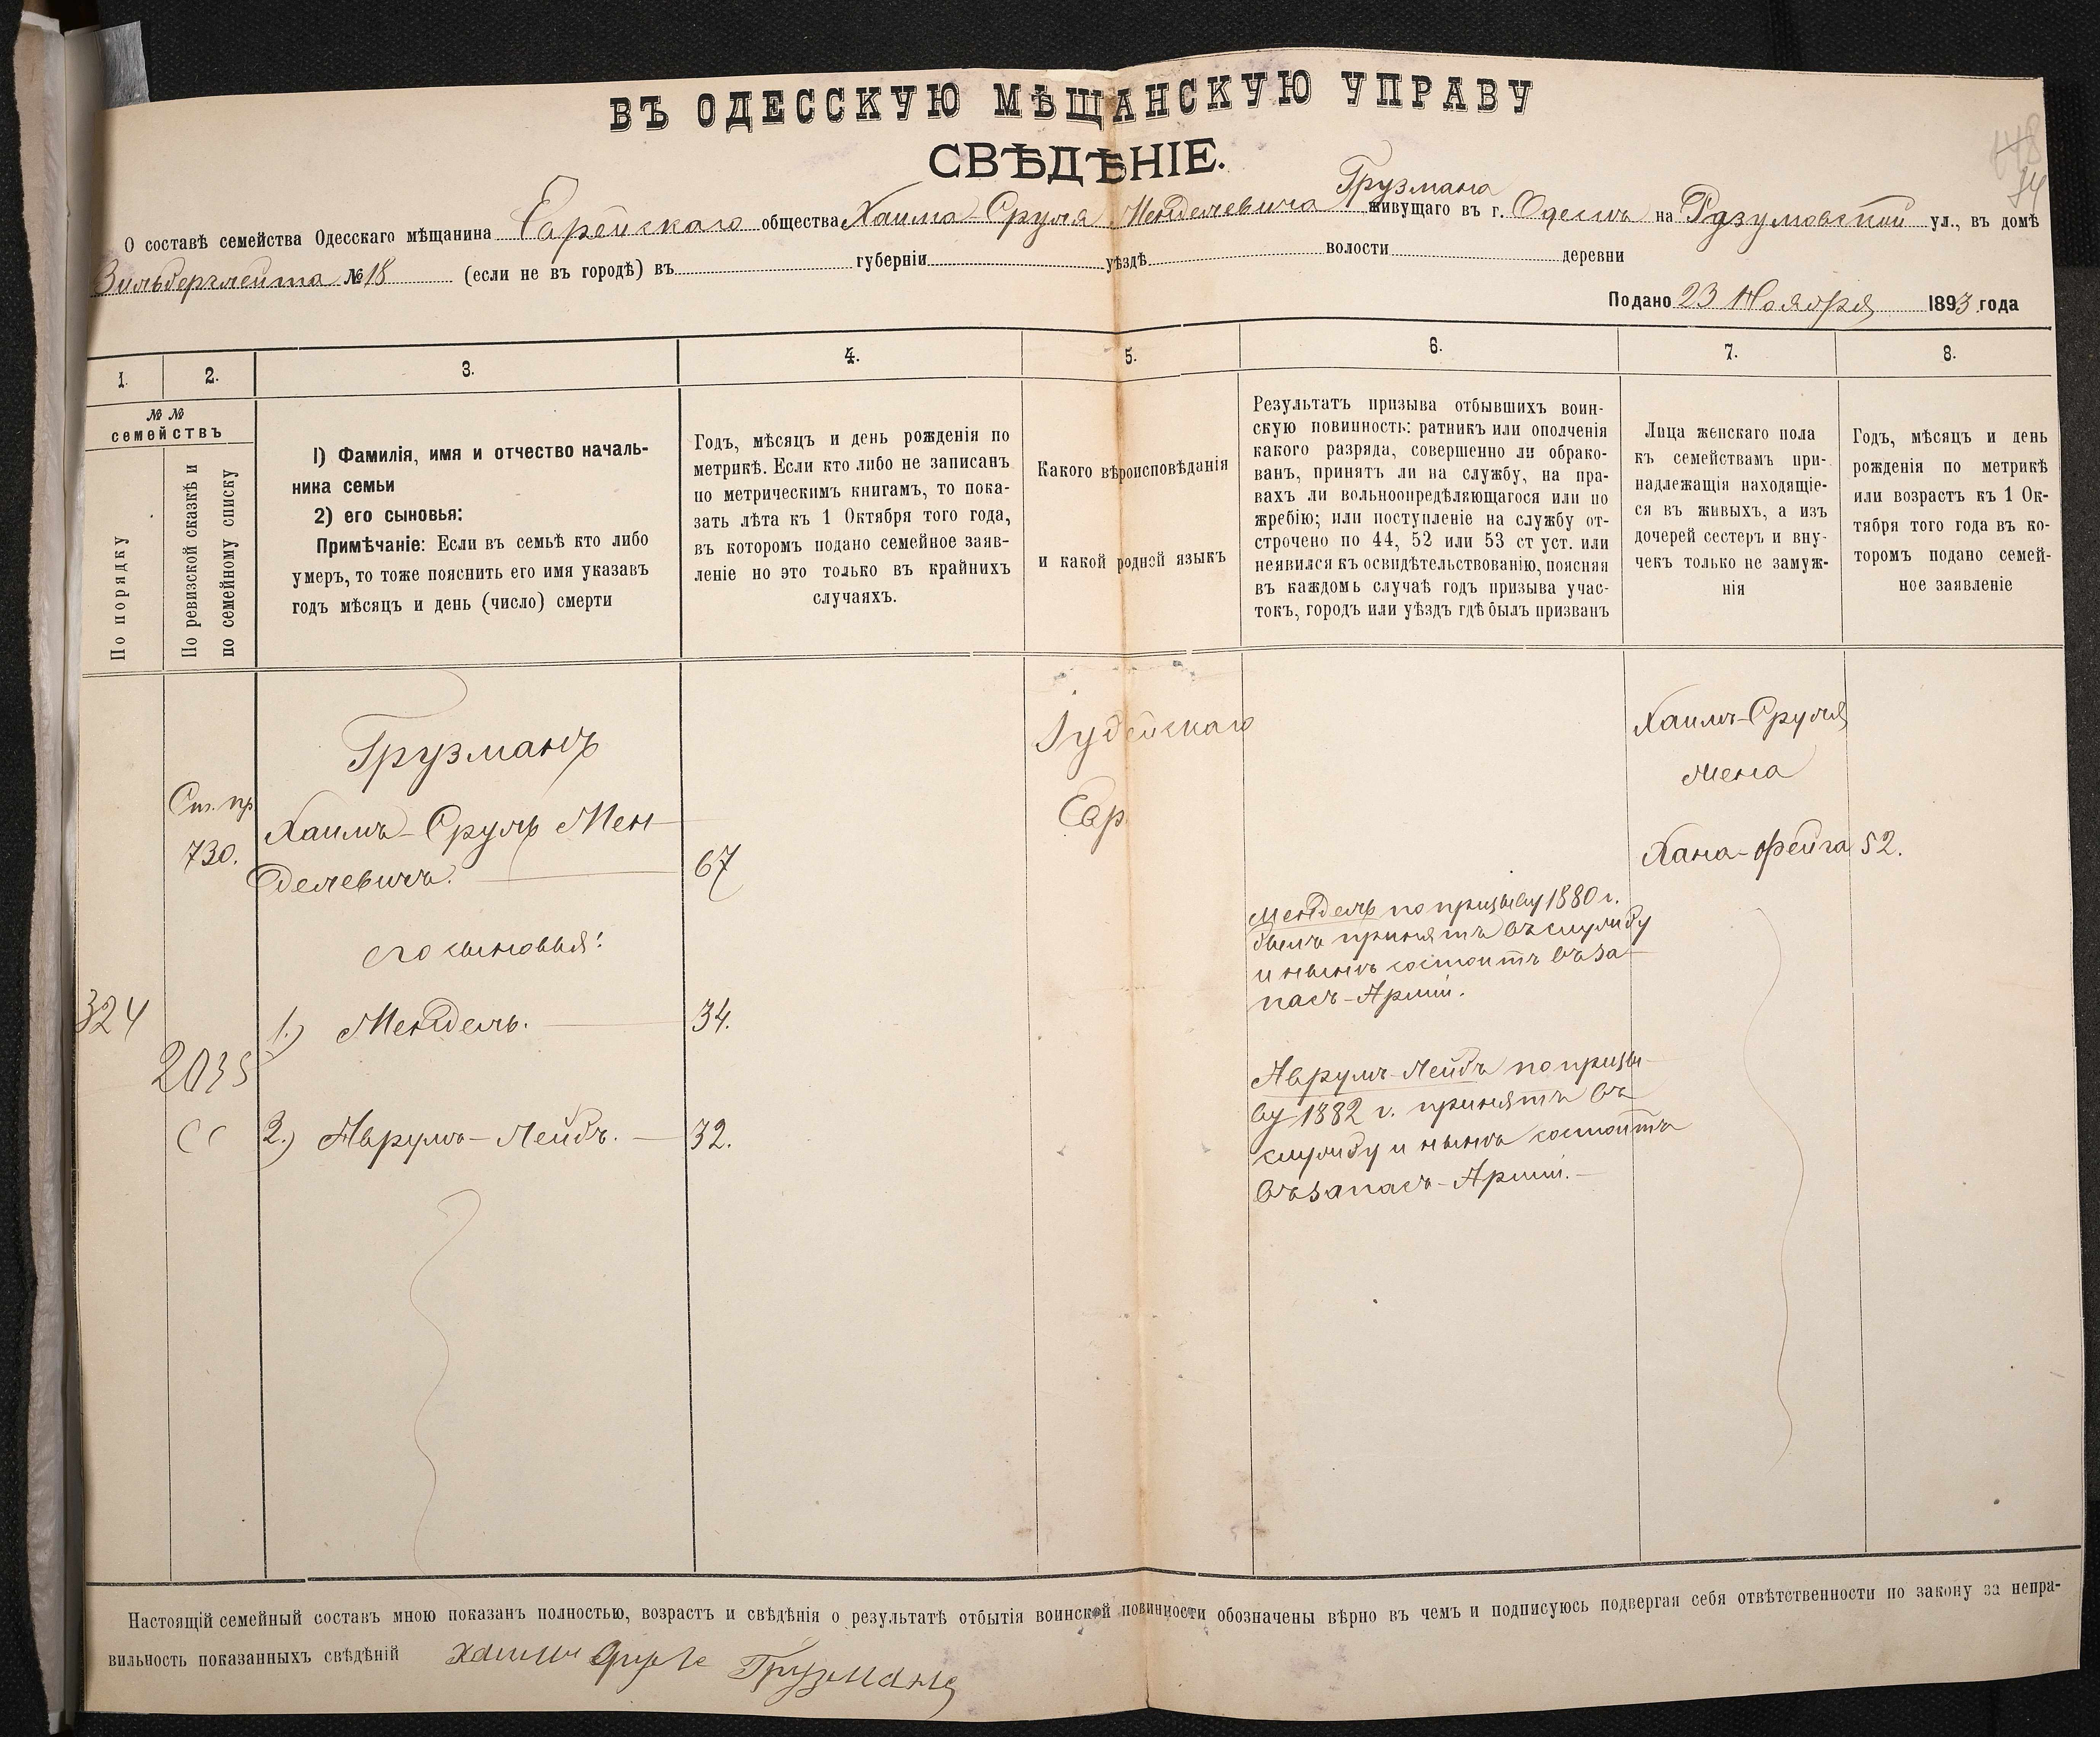 ВЪ ОДЕССКУЮ МѢЩАНСКУЮ УПРАВУ
СВѢДѢНІЕ.
О составѣ семейства Одесскаго мѣщанина Еврейскаго общества Хаима-Сруля Менделевича Грузмана живущаго въ г. Одессѣ на Разумовской ул., въ домѣ
Зильберглейта № 18 (если не въ городѣ) въ губерніи уѣздѣ волости деревни
Подано 23 Ноября 1893 года
1. 2. 3. 4. 5. 6. 7. 8.
№ №
семействъ
По порядку
По ревизской сказкѣ и
по семейному списку
1) Фамилія, имя и отчество началь-
ника семьи
2) его сыновья:
Примѣчаніе: Если въ семьѣ кто либо
умеръ, то тоже пояснить его имя указавъ
годъ мѣсяцъ и день (число) смерти
Годъ, мѣсяцъ и день рожденія по
метрикѣ. Если кто либо не записанъ
по метрическимъ книгамъ, то пока-
зать лѣта къ 1 Октября того года,
въ которомъ подано семейное заяв-
леніе но это только въ крайнихъ
случаяхъ.
Какого вѣроисповѣданія
и какой родной языкъ
Результатъ призыва отбывшихъ воин-
скую повинность: ратникъ или ополченія
какого разряда, совершенно ли обрако-
ванъ, принятъ ли на службу, на пра-
вахъ ли вольноопредѣляющагося или по
жребію; или поступленіе на службу от-
строчено по 44, 52 или 53 ст уст. или
неявился къ освидѣтельствованію, поясняя
въ каждомъ случаѣ годъ призыва учас-
токъ, городъ или уѣздъ гдѣ былъ призванъ
Лица женскаго пола
къ семействамъ при-
надлежащія находящіе-
ся въ живыхъ, а изъ
дочерей сестеръ и вну-
чекъ только не замуж-
нія
Годъ, мѣсяцъ и день
рожденія по метрикѣ
или возрастъ къ 1 Ок-
тября того года въ ко-
торомъ подано семей-
ное заявленіе
324
Ст. пр
730.
2035
Грузманъ
Хаимъ-Сруль Мен-
делевичъ. 67
его сыновья:
1.) Мендель. 34.
2.) Аврумъ-Лейбъ. 32.
Іудейскаго
Евр
Мендель по призыву 1880 г.
былъ принятъ въ службу
и нынѣ состоитъ въ за-
пасѣ-Арміи.
Аврумъ-Лейбъ по призы-
ву 1882 г. принятъ въ
службу и нынѣ состоитъ
въ запасѣ-Арміи.-
Хаимъ-Сруля
жена
Хана-Фейга 52.
Настоящій семейный составъ мною показанъ полностью, возрастъ и свѣдѣнія о результатѣ отбытія воинской повинности обозначены вѣрно въ чемъ и подписуюсь подвергая себя отвѣтственности по закону за непра-
вильность показанныхъ свѣдѣній Хаим Сруль Грузманъ